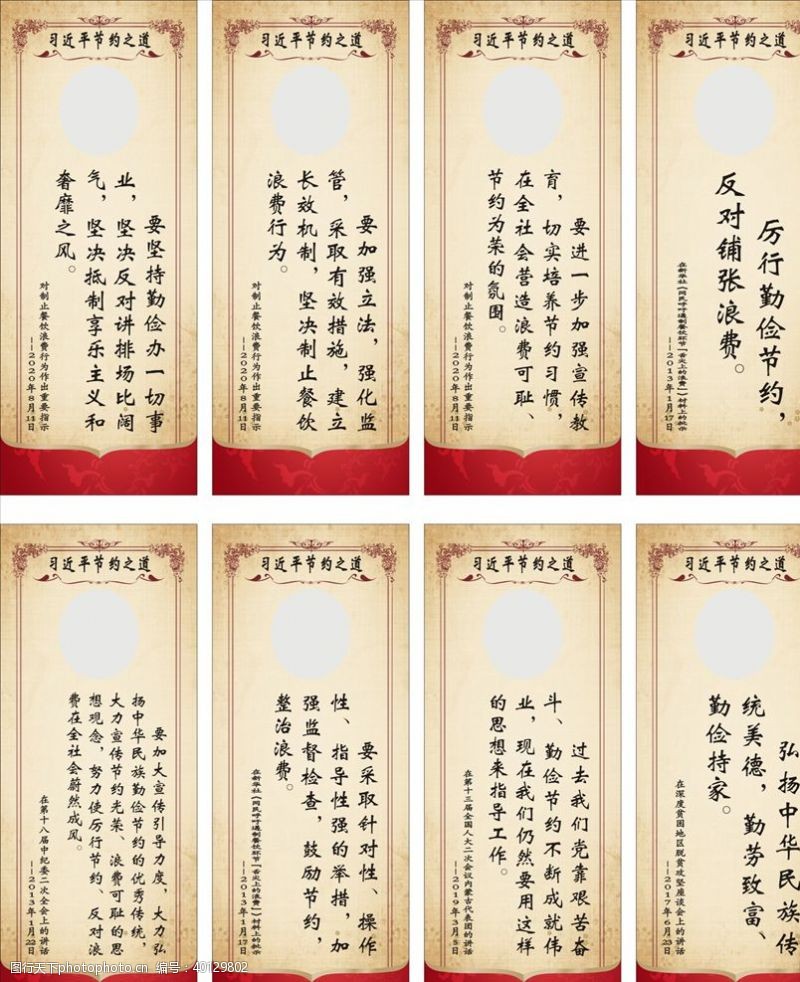 习近平节约之道
要坚持勤俭办一切事
业，坚决反对讲排场比阔
气，坚决抵制享乐主义和
奢靡之风。
对制止餐饮浪费行为作出重要指示
——2020年8月11日
习近平节约之道
要加强立法，强化监
管，采取有效措施，建立
长效机制，坚决制止餐饮
浪费行为。
对制止餐饮浪费行为作出重要指示
——2020年8月11日
习近平节约之道
要进一步加强宣传教
育，切实培养节约习惯，
在全社会营造浪费可耻、
节约为荣的氛围。
对制止餐饮浪费行为作出重要指示
——2020年8月11日
习近平节约之道
厉行勤俭节约，
反对铺张浪费。
在新华社《网民呼吁遏制餐饮环节“舌尖上的浪费”》材料上的批示
——2013年1月17日
习近平节约之道
要加大宣传引导力度，大力弘
扬中华民族勤俭节约的优秀传统，
大力宣传节约光荣、浪费可耻的思
想观念，努力使厉行节约、反对浪
费在全社会蔚然成风。
在第十八届中纪委二次全会上的讲话
——2013年1月22日
习近平节约之道
要采取针对性、操作
性、指导性强的举措，加
强监督检查，鼓励节约，
整治浪费。
在新华社《网民呼吁遏制餐饮环节“舌尖上的浪费”》材料上的批示
——2013年1月17日
习近平节约之道
过去我们党靠艰苦奋
斗、勤俭节约不断成就伟
业，现在我们仍然要用这样
的思想来指导工作。
在第十三届全国人大二次会议内蒙古代表团的讲话
——2019年3月5日
习近平节约之道
弘扬中华民族传
统美德，勤劳致富、
勤俭持家。
在深度贫困地区脱贫攻坚座谈会上的讲话
——2017年6月23日
图行天下photophoto.cn 编号：40129802